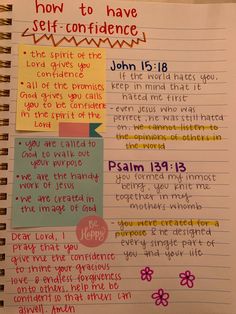 how to have
self-confidence
• the spirit of the
Lord gives you
confidence
• all of the promises
God gives you calls
you to be confident
in the spirit of the
Lord
• you are called to
God to walk out
your purpose
• we are the handy
work of Jesus
• we are created in
the image of God
BE
HAPPY
Dear Lord, I
pray that you
give me the confidence
to shine your gracious
love & endless forgiveness
onto others, help me be
confident so that others can
aswell. Amen
John 15:18
If the world hates you,
keep in mind that it
hated me first
• even Jesus who was
perfect, he was still hated
on, we cannot listen to
the opinions of others in
the world
Psalm 139:13
you formed my inmost
being, you knit me
together in my
mothers womb
• you were created for a
purpose & he designed
every single part of
you and your life